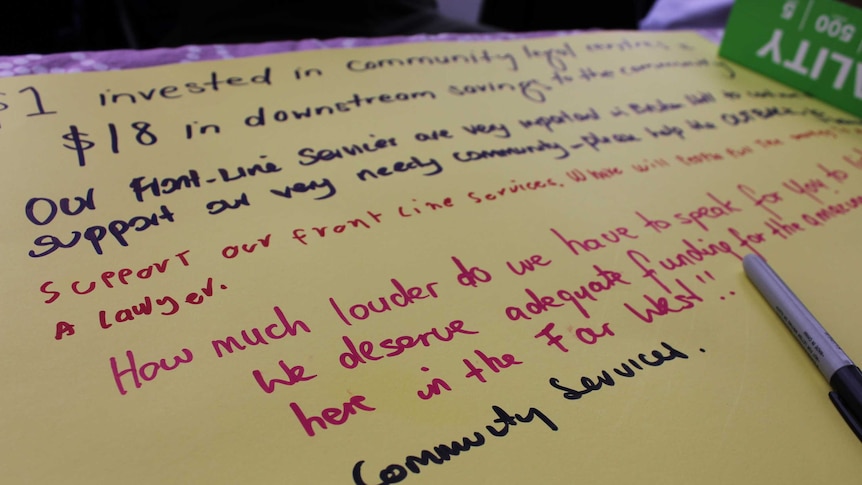 $1 invested in community legal centres =
$18 in downstream savings to the community
Our Front-Line Services are very important in Broken Hill to
support our very needy community - please help the
Support our front line services. Where will people
A lawyer.
How much louder do we have to speak for you to
We deserve adequate funding for the
here in the Far West!!
Community Services.
ALITY
500
5